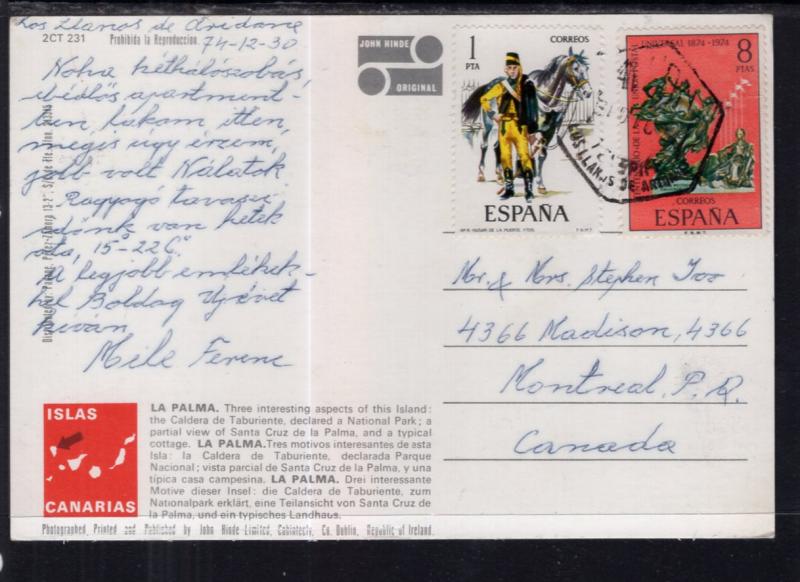 Los Llanos de Aridane
2CT 231
Prohibida la Reproduccion.
74-12-30
Noha héthálószobás,
ebédlős apartment-
ben lakom itten,
mégis úgy érzem,
jobb volt Nálatok
Ragyogó tavaszi
időnk van hetek
óta, 15-22C°.
A legjobb emlékek-
kel Boldog Újévet
kíván
Mile Ferenc
JOHN HINDE
ORIGINAL
1
PTA
CORREOS
ESPAÑA
F.N.M.T.
UNIVERSAL 1874-1974
8
PTAS
CORREOS
ESPAÑA
F.N.M.T.
LOS LLANOS DE ARIDANE
Mr. & Mrs. Stephen
4366 Madison, 4366
Montreal, P. Q.
Canada
ISLAS
CANARIAS
LA PALMA. Three interesting aspects of this Island:
the Caldera de Taburiente, declared a National Park; a
partial view of Santa Cruz de la Palma, and a typical
cottage. LA PALMA. Tres motivos interesantes de esta
Isla: la Caldera de Taburiente, declarada Parque
Nacional; vista parcial de Santa Cruz de la Palma, y una
típica casa campesina. LA PALMA. Drei interessante
Motive dieser Insel: die Caldera de Taburiente, zum
Nationalpark erklärt, eine Teilansicht von Santa Cruz de
la Palma, und ein typisches Landhaus.
Photographed, Printed and Published by John Hinde Limited, Cabinteely, Co. Dublin, Republic of Ireland.